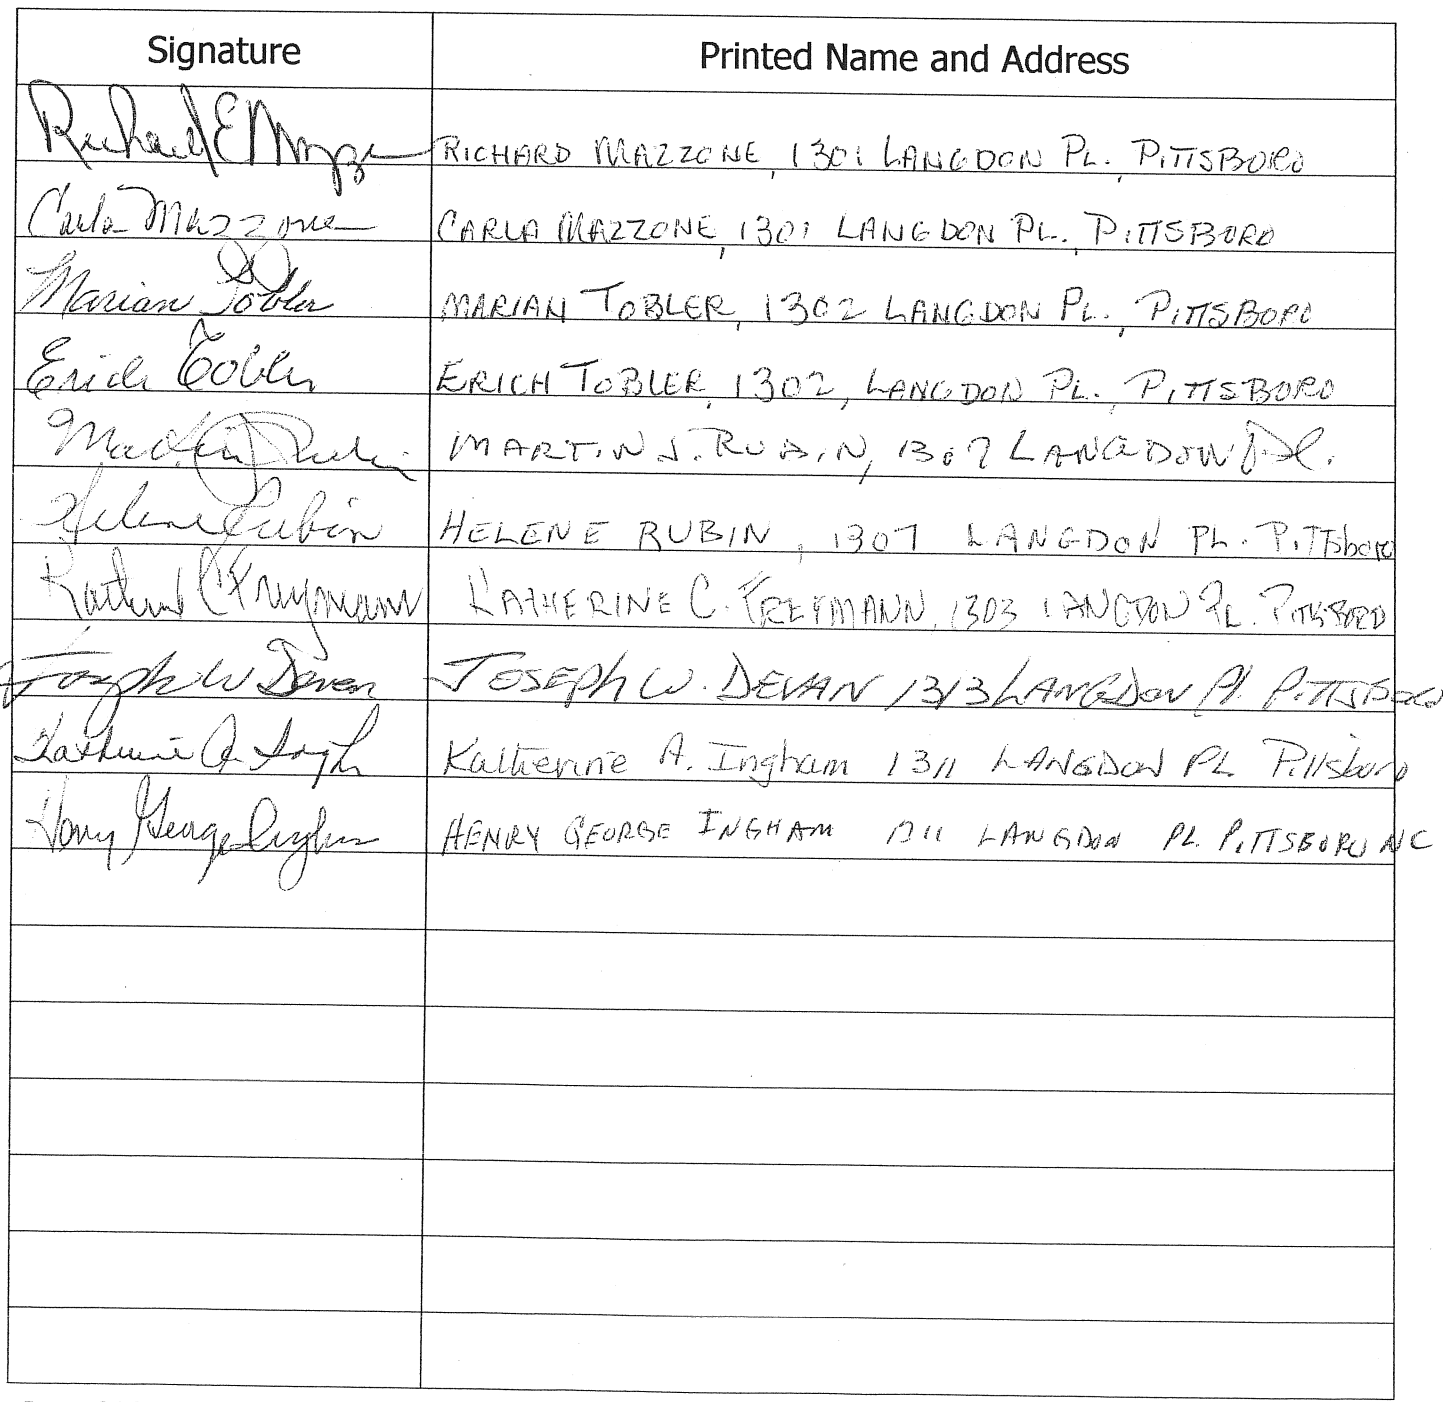 Signature Printed Name and Address
Richard E Mazzone RICHARD MAZZONE, 1301 LANGDON PL., PITTSBORO
Carla Mazzone CARLA MAZZONE, 1301 LANGDON PL., PITTSBORO
Marian Tobler MARIAN TOBLER, 1302 LANGDON PL., PITTSBORO
Erich Tobler ERICH TOBLER, 1302, LANGDON PL., PITTSBORO
Martin J Rubin MARTIN J. RUBIN, 1307 LANGDON Pl.
Helene Rubin HELENE RUBIN, 1307 LANGDON PL. PITTSboro
Katherine C Freymann KATHERINE C. FREYMANN, 1303 LANGDON PL. PITTSBORO
Joseph W Devan JOSEPH W. DEVAN 1313 LANGDON Pl. PITTSBORO
Katherine A. Ingham Katherine A. Ingham 1311 LANGDON PL Pittsboro
Henry George Ingham HENRY GEORGE INGHAM 1311 LANGDON PL. PITTSBORO NC